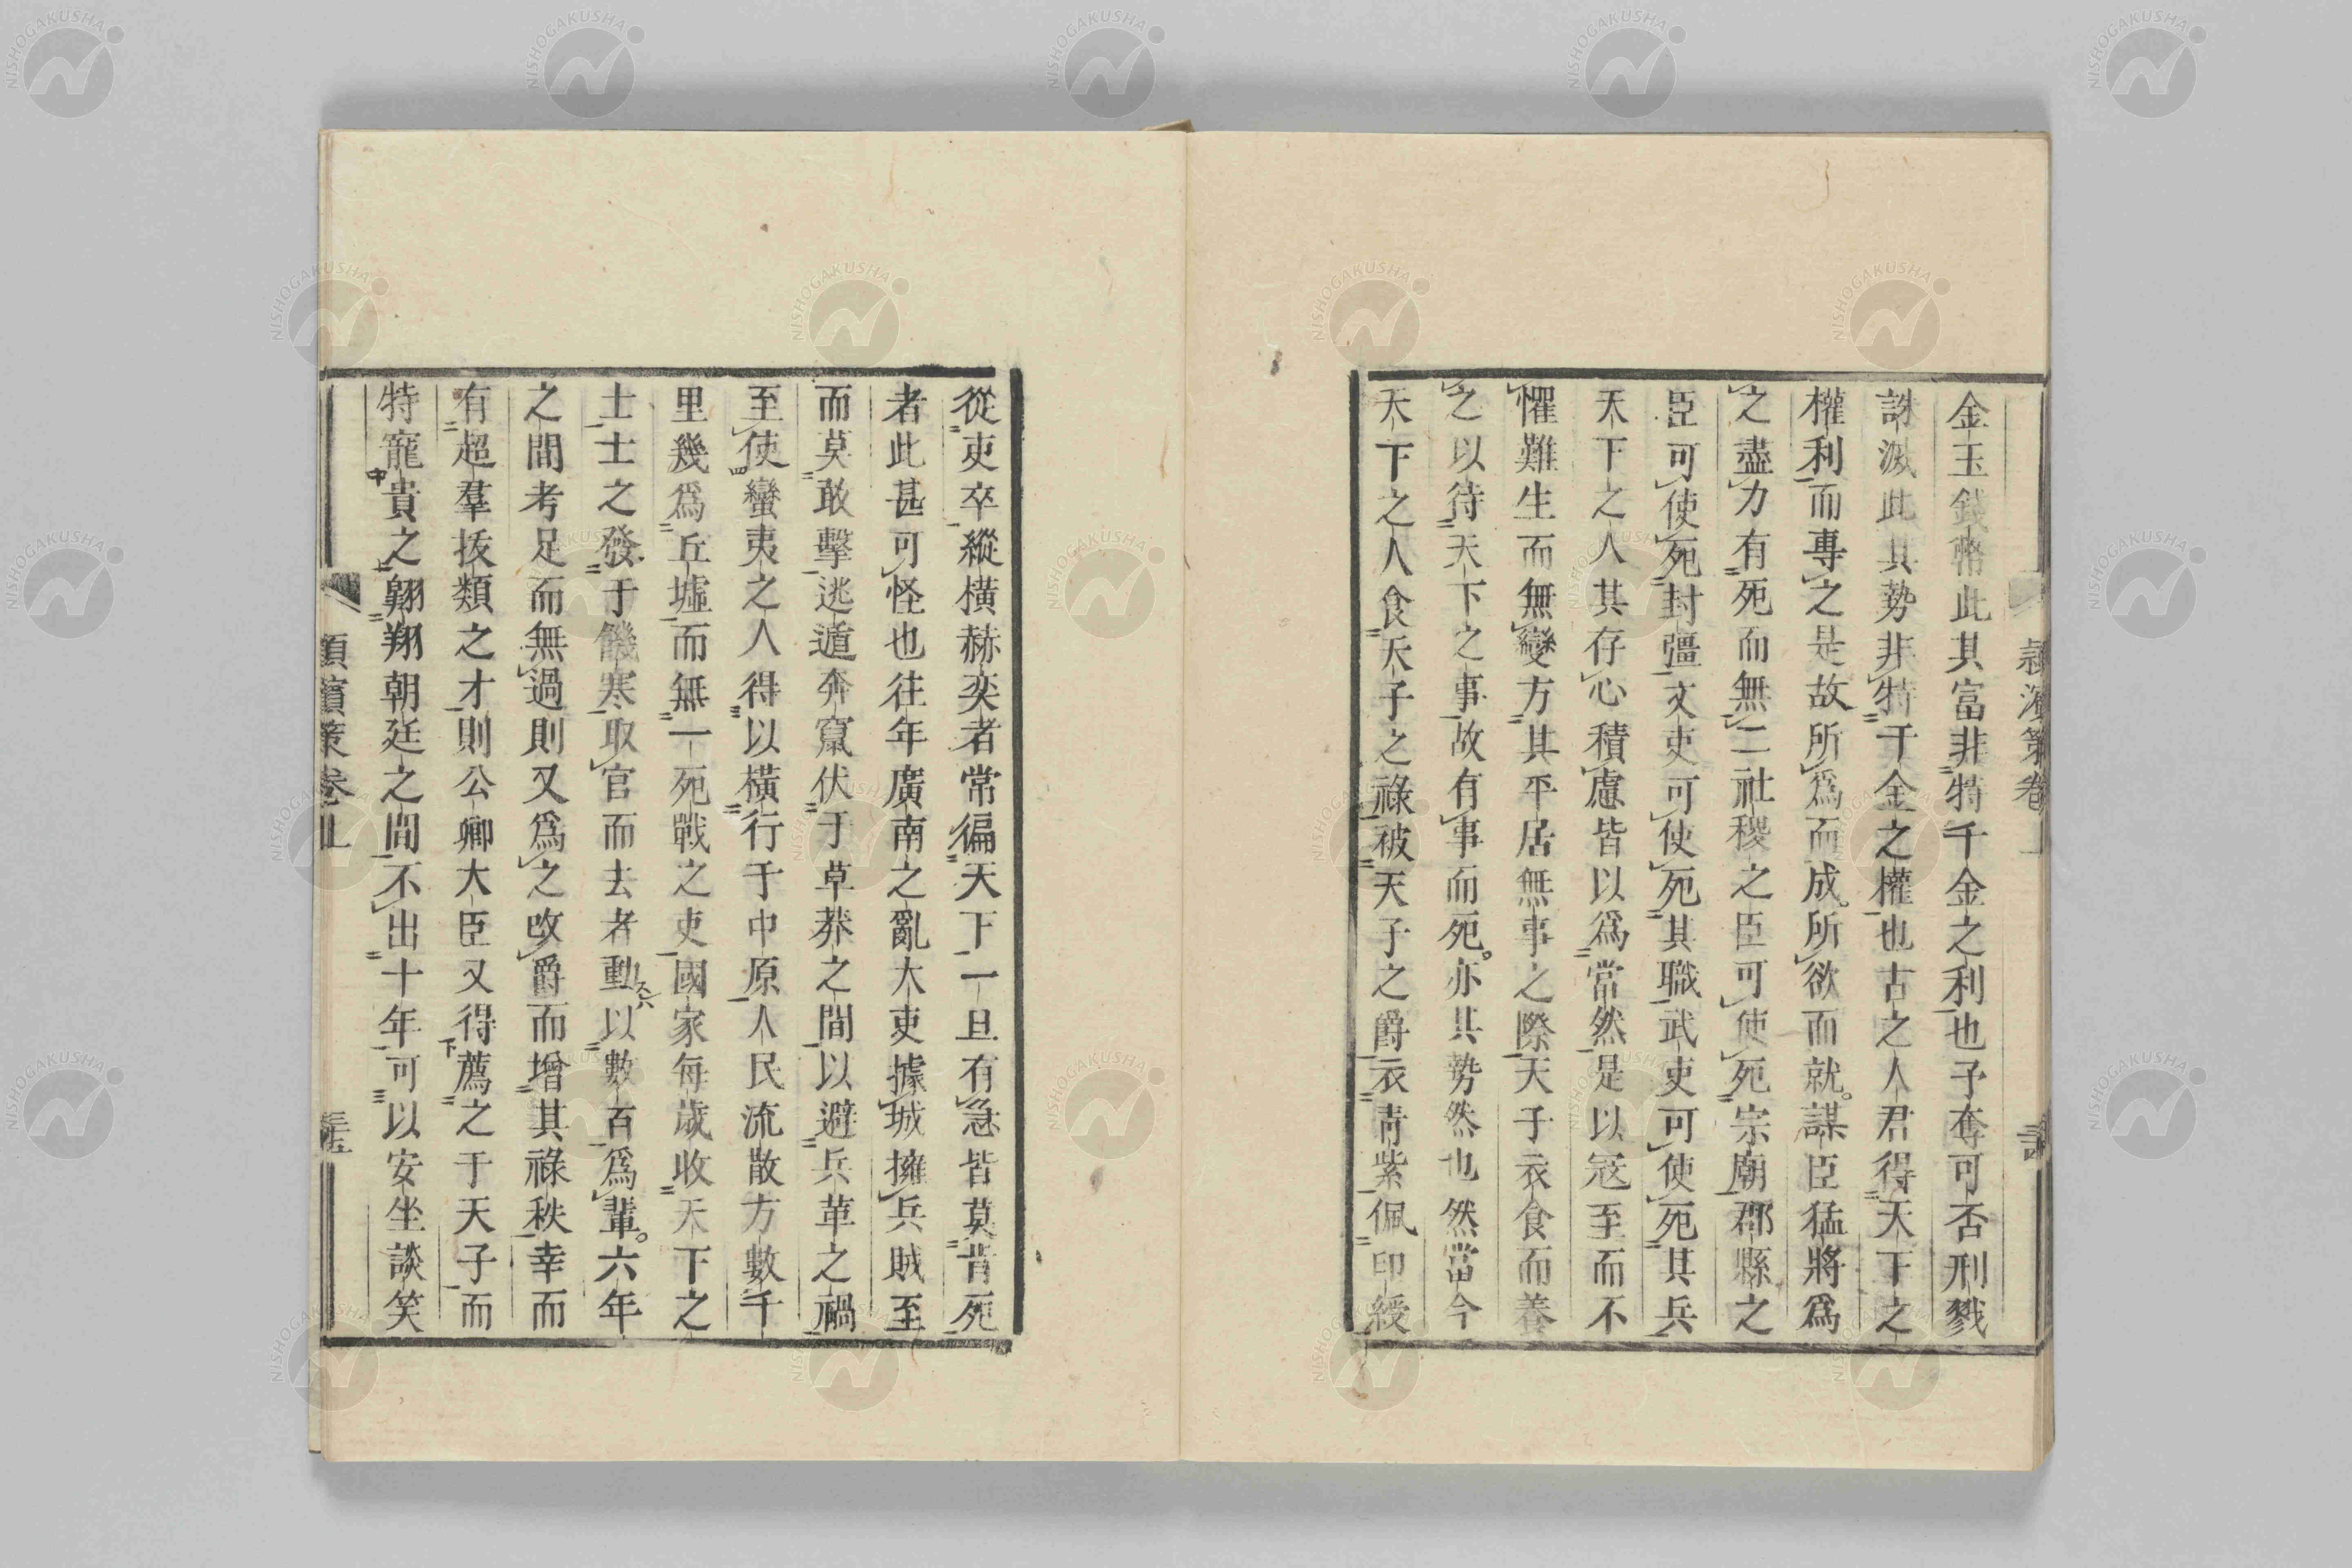 金玉錢幣此其富非特千金之利也予奪可否刑戮
誅滅此其勢非特千金之權也古之人君得天下之
權利而專之是故所爲而成所欲而就謀臣猛將爲
之盡力有死而無二社稷之臣可使死宗廟郡縣之
臣可使死封疆文吏可使死其職武吏可使死其兵
天下之人其存心積慮皆以爲當然是以冦至而不
懼難生而無變方其平居無事之際天子衣食而養
之以待天下之事故有事而死亦其勢然也然當今
天下之人食天子之祿被天子之爵衣青紫佩印綬
從吏卒縱橫赫奕者常徧天下一旦有急皆莫肯死
者此甚可怪也往年廣南之亂大吏據城擁兵賊至
而莫敢擊逃遁奔竄伏于草莽之間以避兵革之禍
至使蠻夷之人得以橫行于中原人民流散方數千
里幾爲丘墟而無一死戰之吏國家每歲收天下之
士士之發于饑寒取官而去者動以數百爲輩六年
之間考足而無過則又爲之改爵而增其祿秩幸而
有超羣拔類之才則公卿大臣又得薦之于天子而
特寵貴之翺翔朝廷之間不出十年可以安坐談笑
潁濱策卷上
NISHOGAKUSHA